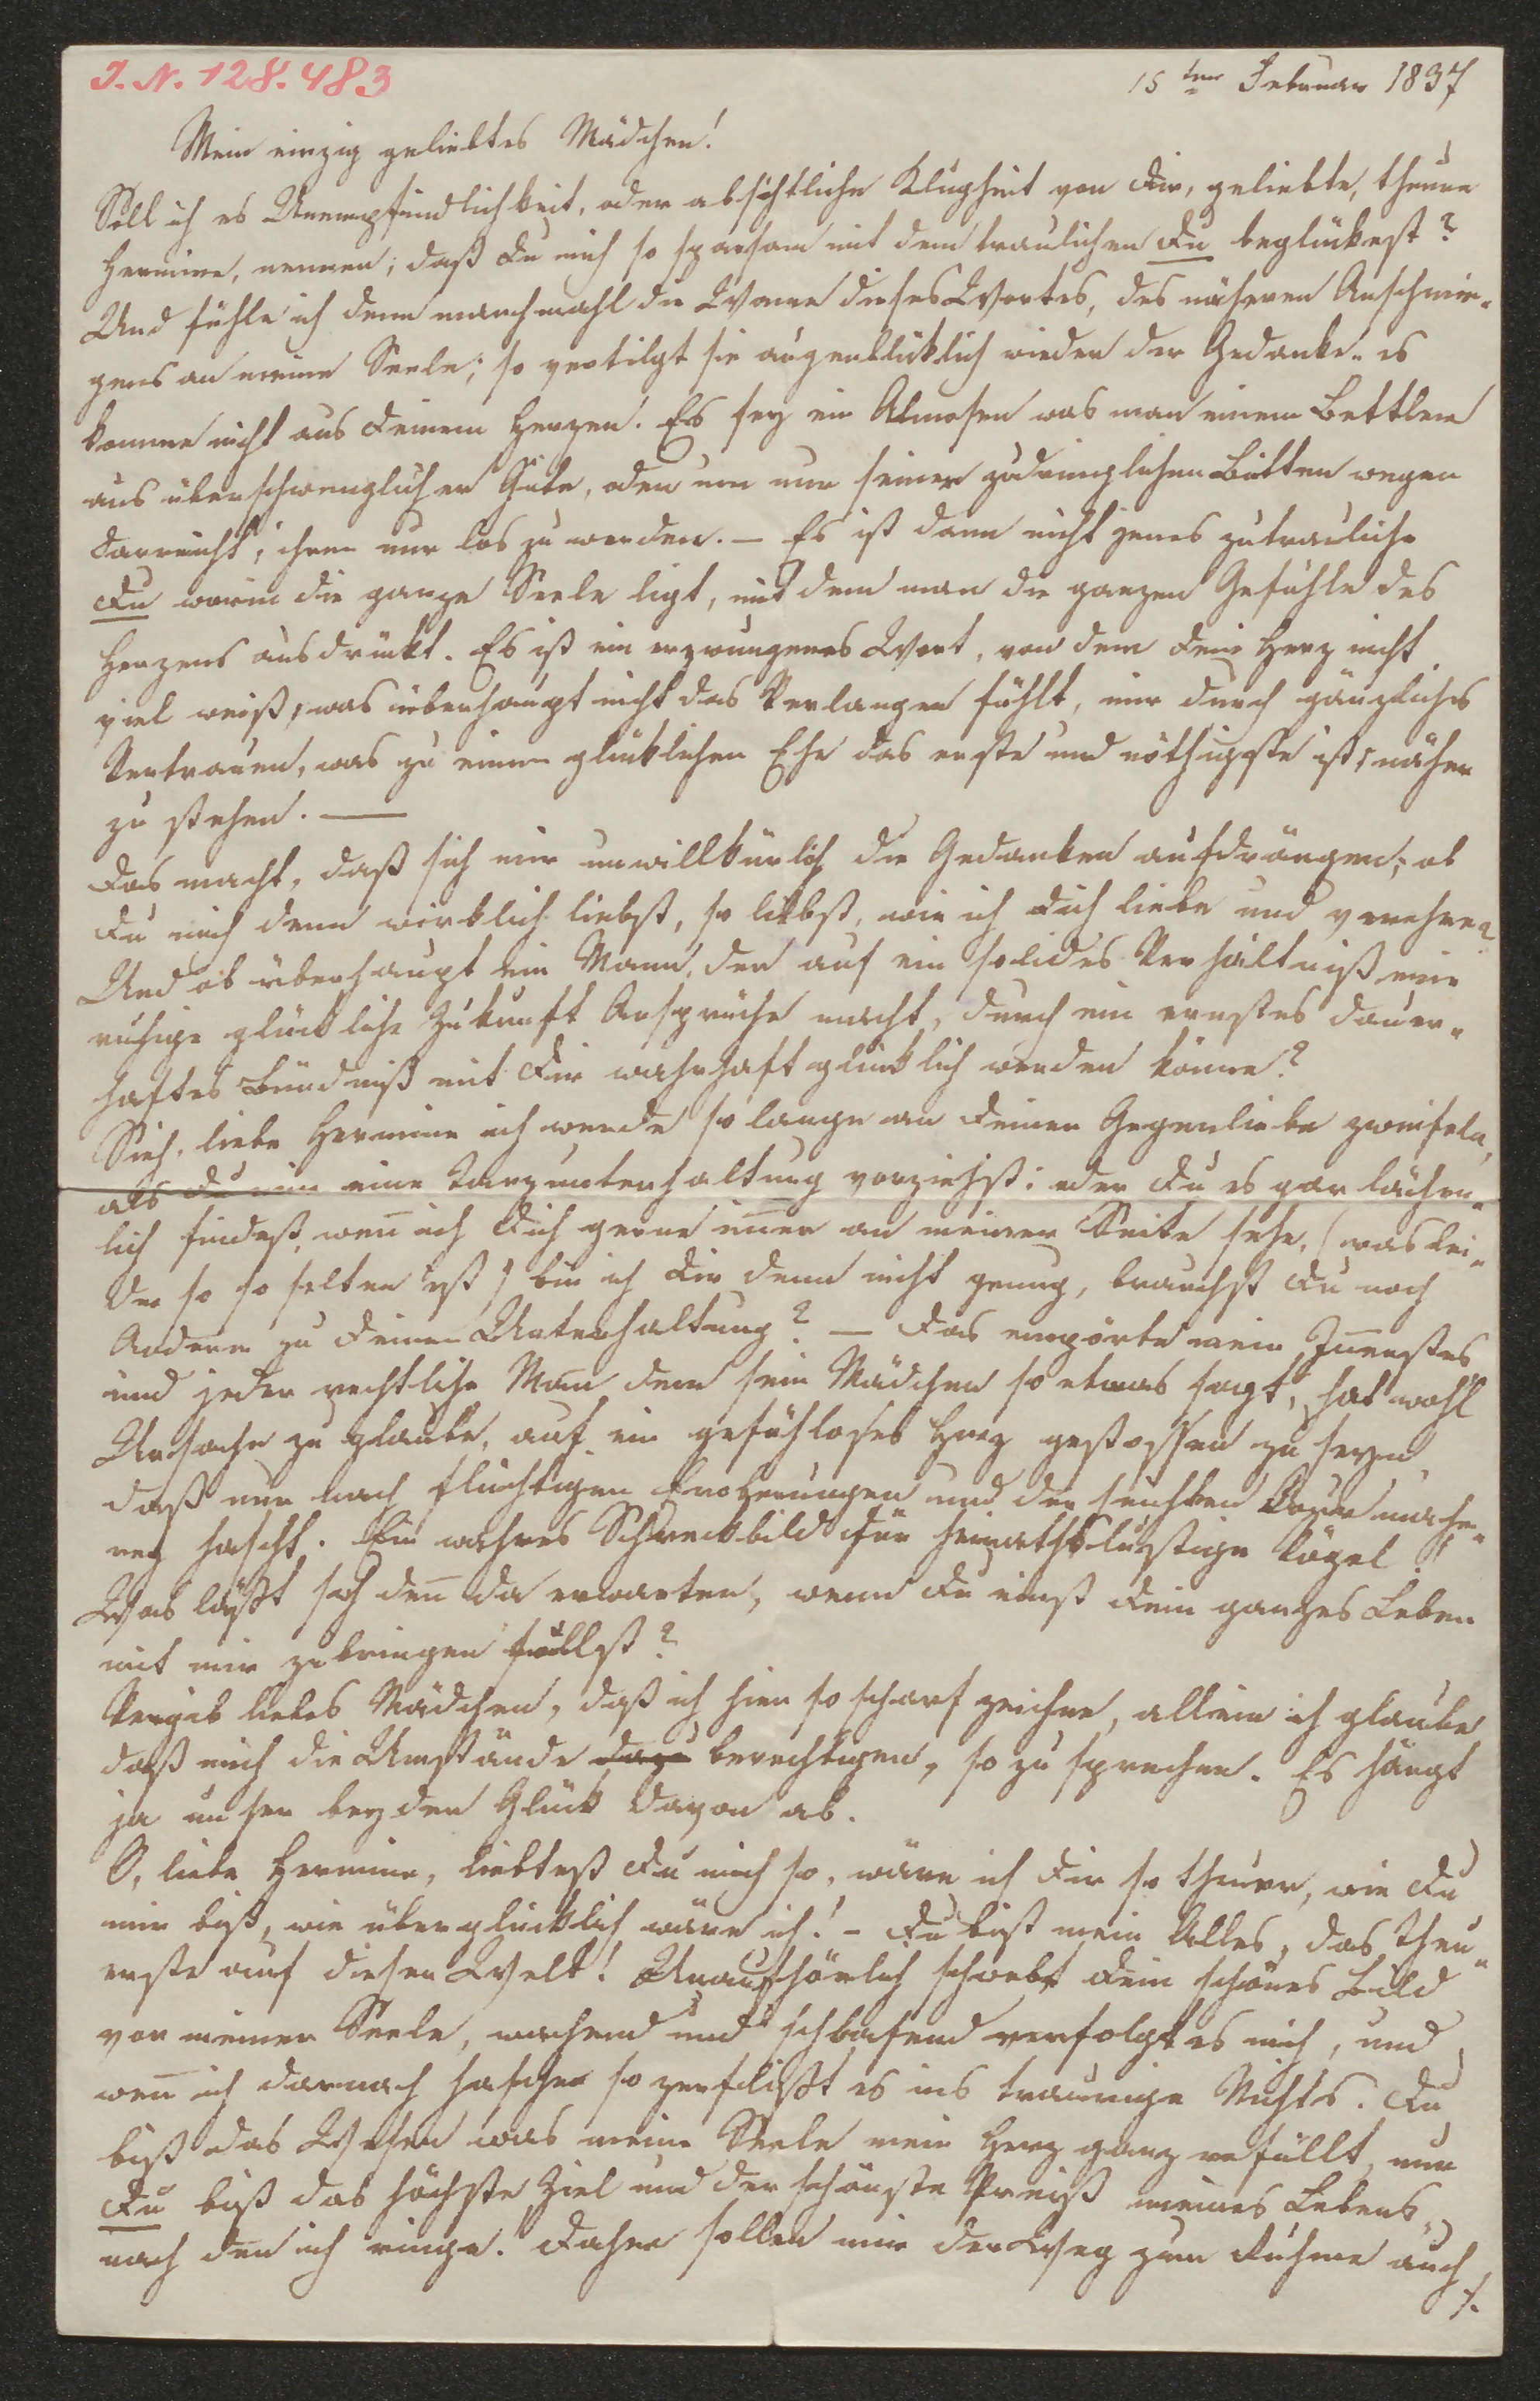 J. N. 128.483
15ten Februar 1837
Mein einzig geliebtes Mädchen!
Soll ich es Unempfindlichkeit, oder absichtliche Klugheit von Dir, geliebte, theure
Hermine, nennen; daß Du mich so sparsam mit dem traulichen Du beglückest?
Und fühle ich denn manchmahl die Wonne dieses Wortes, des näheren Anschmie-
gens an meine Seele; so vertilgt sie augenbliklich wieder der Gedanke: es
komme nicht aus Deinem Herzen! Es sey ein Almosen was man einem Bettler
aus überschwenglicher Güte, oder um nur seiner zudringlichen Bitten wegen
darreicht; ihm nur los zu werden. – Es ist dann nicht jenes zutrauliche
Du worin die ganze Seele ligt, mit dem man die ganzen Gefühle des
Herzens ausdrückt. Es ist ein erzwungenes Wort, von dem Dein Herz nicht
viel weiß, was überhaupt nicht das Verlangen fühlt, mir durch gänzliches
Vertrauen, was zu einer glücklichen Ehe das erste und nöthigste ist, näher
zu stehen. —
Das macht, daß sich mir unwillkürlich die Gedanken aufdrängen; ob
Du mich denn wirklich liebst, so liebst, wie ich Dich liebe und verehre?
Und ob überhaupt ein Mann, der auf ein solides Verhältniß eine
ruhige glückliche Zukunft Ansprüche macht, durch ein ernstes dauer-
haftes Bündniß mit Dir wahrhaft glücklich werden könne?
Sieh, liebe Hermine ich werde so lange an Deiner Gegenliebe zweifeln,
als Du mir eine Tanzunterhaltung vorziehst; oder Du es gar lächer-
lich findest, wen̄ ich Dich gerne im̄er an meiner Seite sehe, (was lei-
der so so selten ist) bin ich Dir denn nicht genug, brauchst Du noch
Andere zu Deiner Unterhaltung? — Das empörte mein In̄erstes
und jeder rechtliche Man̄ dem sein Mädchen so etwas sagt, hat wohl
Ursache zu glaube, auf ein gefühloses Herz gestossen zu seyn
daß nur nach flüchtigen Eroberungen und der seichten Courmache-
rey hascht. Ein wahres Schreckbild für heirathslustige Vögel!
Was läßt sich den̄ da erwarten, wenn Du einst Dein ganzes Leben
mit mir zubringen sollst?
Vergib liebes Mädchen, daß ich hier so scharf zeichne, allein ich glaube
daß mich die Umstände dazu berechtigen, so zu sprechen. Es hängt
ja unser beyder Glück davon ab.
O, liebe Hermine, liebtest Du mich so, wäre ich Dir so theuer, wie Du
mir bist, wie überglücklich wäre ich! – Du bist mein Alles, das theu-
erste auf dieser Welt! Unaufhörlich schwebt Dein schönes Bild
vor meiner Seele, wachend und schlafend verfolgt es mich, und
wen̄ ich darnach hasche so zerfließt es ins traurige Nichts. Du
bist das Wesen was meine Seele mein Herz ganz erfüllt, nur
Du bist das höchste Ziel und der schönste Preiß meines Lebens,
nach den ich ringe. Daher sollen mir der Weg zum Ruhme auch
./.